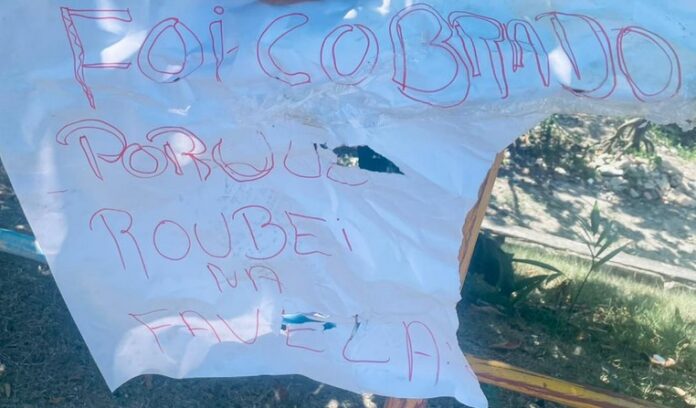 FOI COBRADO
PORQUE
ROUBEI
NA
FAVELA